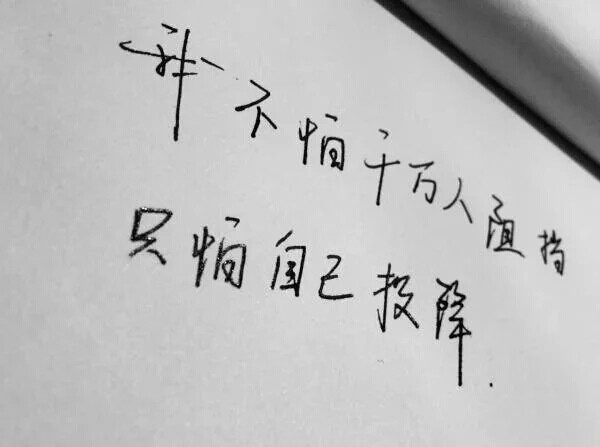 我不怕千万人阻挡
只怕自己投降.